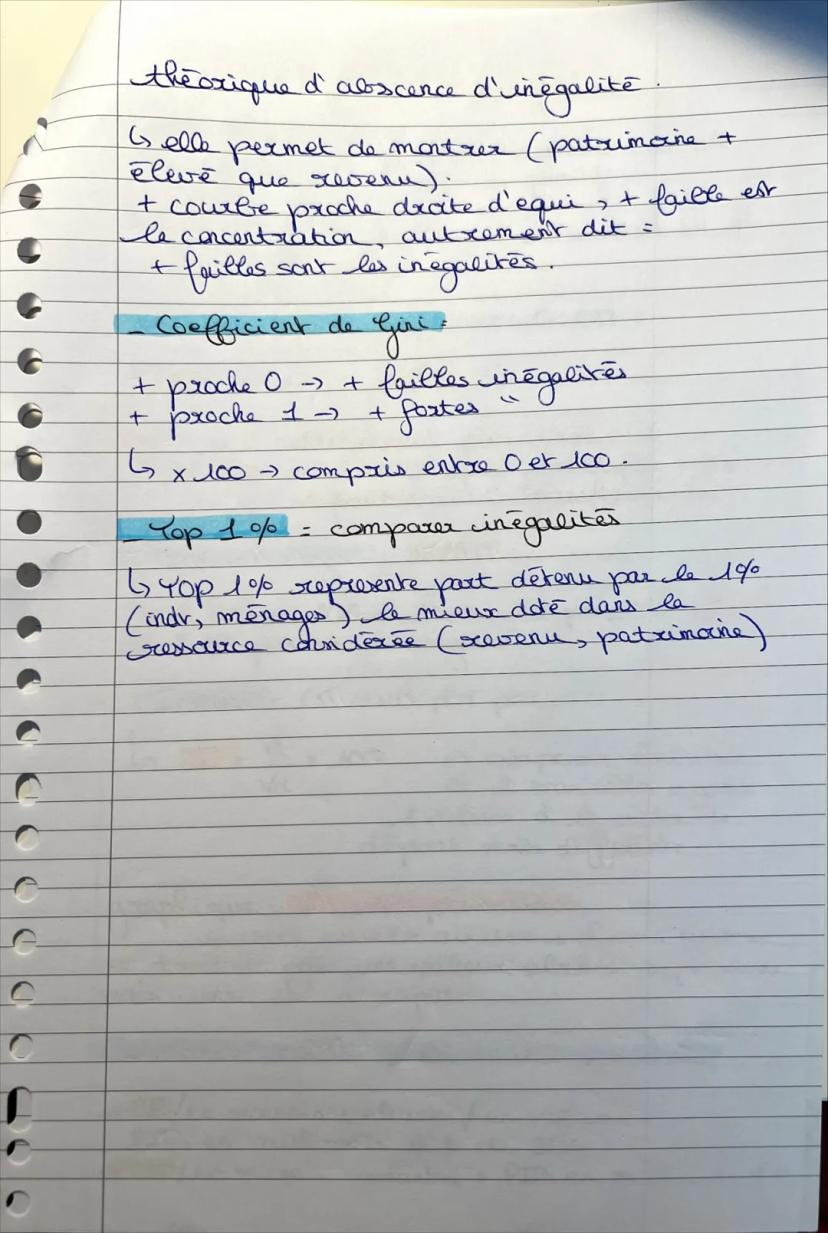 théorique d'abscence d'inégalité.
↳ elle permet de montrer (patrimoine +
élevé que revenu).
+ courbe proche droite d'equi, + faible est
la concentration, autrement dit :
+ faibles sont les inégalités.
- Coefficient de Gini :
+ proche 0 → + faibles inégalités
+ proche 1 → + fortes "
↳ x 100 → compris entre 0 et 100.
- Top 1% = comparer inégalités
↳ Top 1% represente part détenu par le 1%
(indv, ménages) le mieux doté dans la
ressource considérée (revenu, patrimoine)